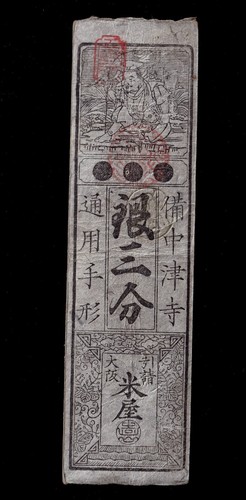 備中津寺
銀二分
通用手形
米屋
大阪